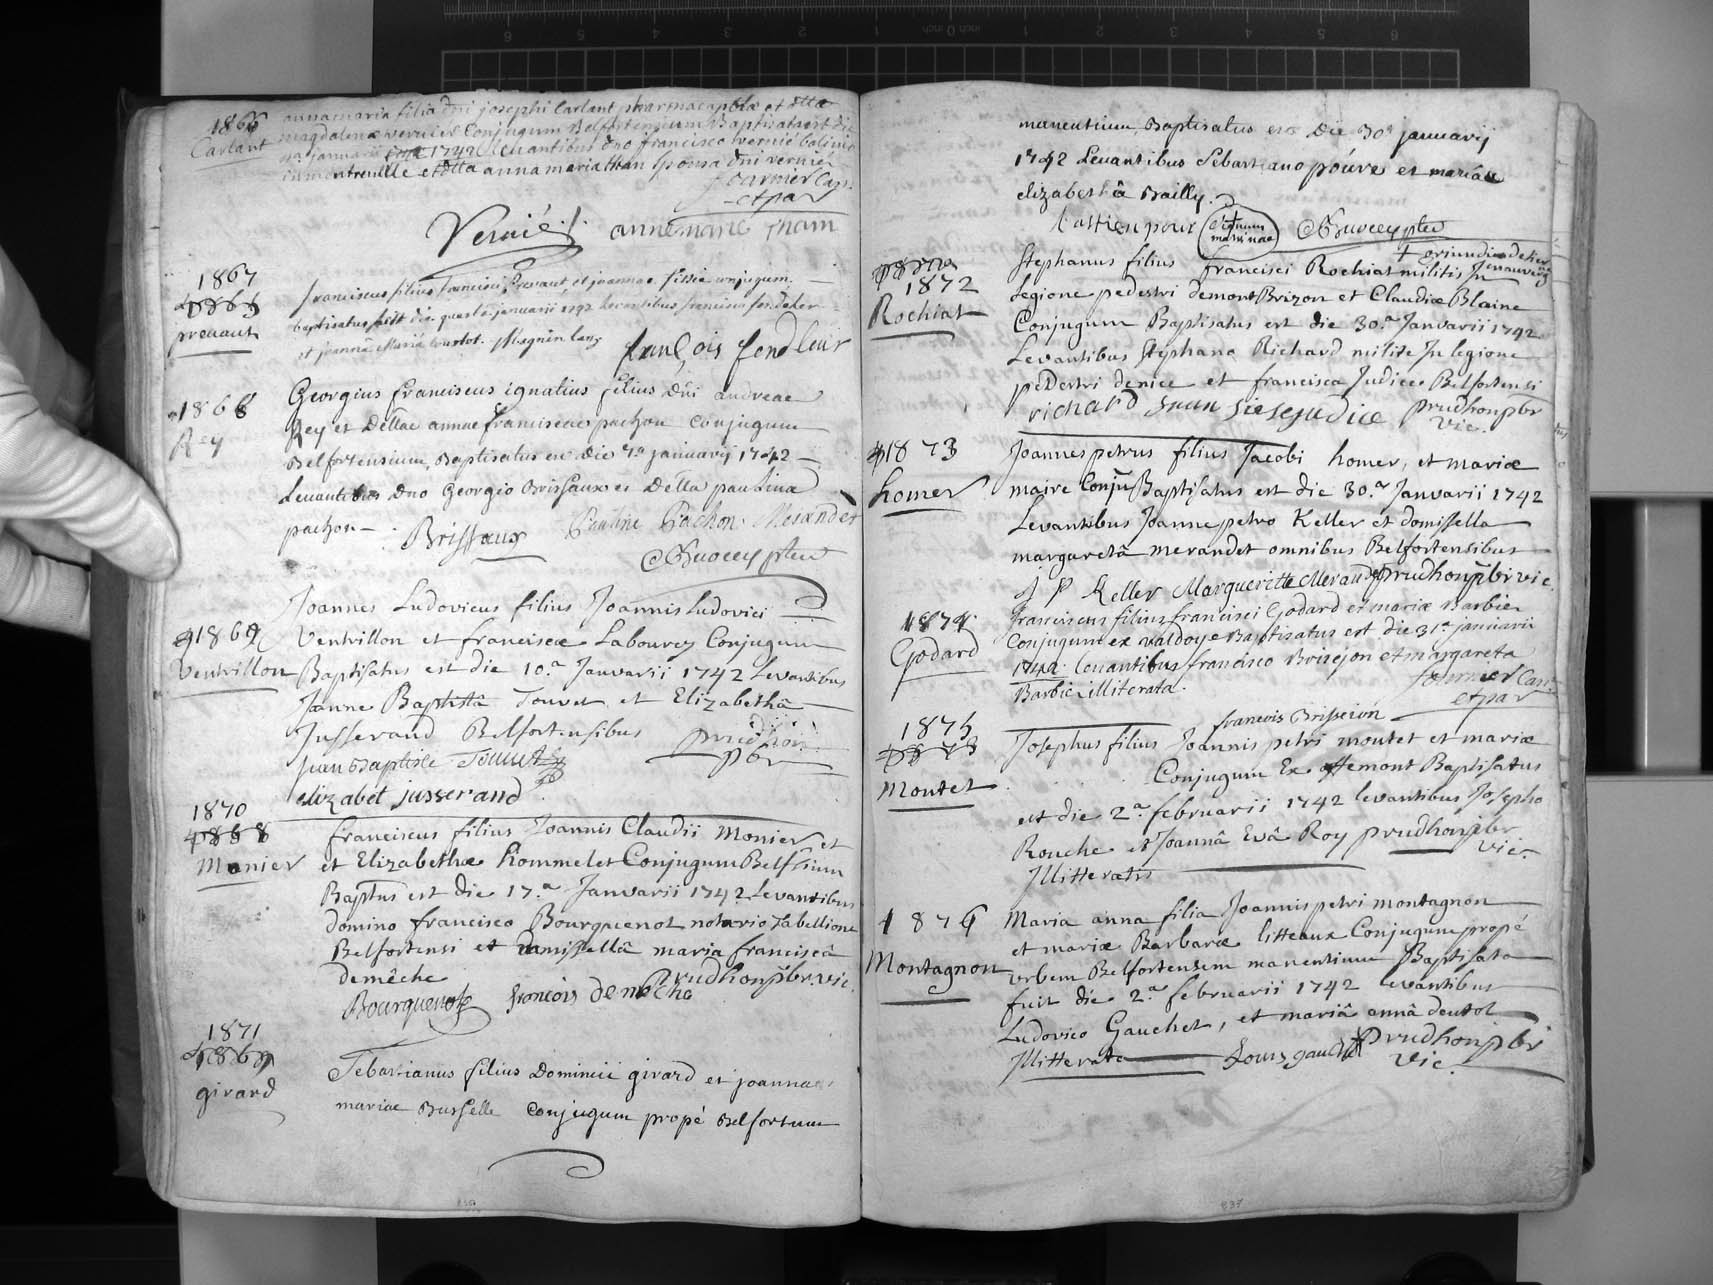 1866
Carlant
anna maria filia dni josephi Carlant pharmacopolae et dttae
magdalenae vernier Conjugum Belfortensium Baptisata est die
januarii 1742 levantibus dno francisco vernié
in montreulle et dtta anna maria than sponsa dni vernier
fournier Cap.
et par
Verniés. anne marie Tham
1867
1865
prevaut
franciscus filius francisci prevaut, et joannae conjugum.
baptisatus fuit die quarta januarii 1742 levantibus francisco fendeler
et joannâ Mariâ courtot. Magnin
fançois fendleur
1868
Rey
Georgius franciscus ignatius filius dni andreae
Rey et Dellae annae franciscae pachon conjugum
Belfortensium, Baptisatus est die 7a januarij 1742
Levantibus Dno Georgio Brissaux et Della paulina
pachon. Brissaux Pauline Pachon Mérandet
1869
Ventrillon
Joannes Ludovicus filius Joannis Ludovici
Ventrillon et franciscae Labourey Conjugum
Baptisatus est die 10.a Januarii 1742 Levantibus
Joanne Baptistâ Touvet et Elizabethâ
Jusserand Belfortensibus prudhon
pbr
jean Baptiste Touvet
elizabet jusserand
1870
1868
Monier
franciscus filius Joannis Claudii Monier et
et Elizabethae hommelet Conjugum Belfsium
Baptus est die 17.a Januarii 1742 Levantibus
domino francisco Bourquenot notario Tabellione
Belfortensi et Damisellâ maria franciscâ
demêche Prudhon pbr. vic.
Bourquenot françois demêche
1871
1869
girard
Sebastianus filius Dominici girard et joannae
mariae Busselle conjugum propé Belfortum
manentium, Baptisatus est Die 30a januarij
1742 Levantibus Sebastiano poure et mariâ
elizabethâ Bailly.
bastien pour signum matrinae
1872
Rochiat
+ oriundi
Stephanus filius francisci Rochiat militis In
Legione pedestri demontBrizon et Claudiae Blaine
Conjugum Baptisatus est die 30.a Januarii 1742
Levantibus Stephano Richard milite In legione
pedestri denice et francisca Judice Belfortensi
richard prudhon pbr
vic.
1873
homer
Joannes petrus filius Jacobi homer, et mariae
maire Conju Baptisatus est die 30.a Januarii 1742
Levantibus Joanne petro Keller et domisella
margaretâ merandet omnibus Belfortensibus
J P Keller Margueritte Merandet prudhon pbr vic.
1874
Godard
franciscus filius francisci Godard et mariae Barbier
Conjugum ex valdoye Baptisatus est die 31.a januarii
1742 levantibus francisco Brisejon et margareta
Barbier illiterata. fournier Cap.
et par
francois Brisseion
1875
1873
Montet
Josephus filius Joannis petri montet et mariae
Conjugum Ex offemont Baptisatus
est die 2.a februarii 1742 levantibus Josepho
Rouche et Joannâ Evâ Roy prudhon pbr
vic.
Illitteratis
1876
Montagnon
Maria anna filia Joannis petri montagnon
et mariae Barbarae litteaux Conjugum propé
urbem Belfortensem manentium Baptisata
fuit die 2.a februarii 1742 levantibus
Ludovico Gauchet, et mariâ annâ deutot
Illitterata Louis gauchet prudhon pbr
vic.
837